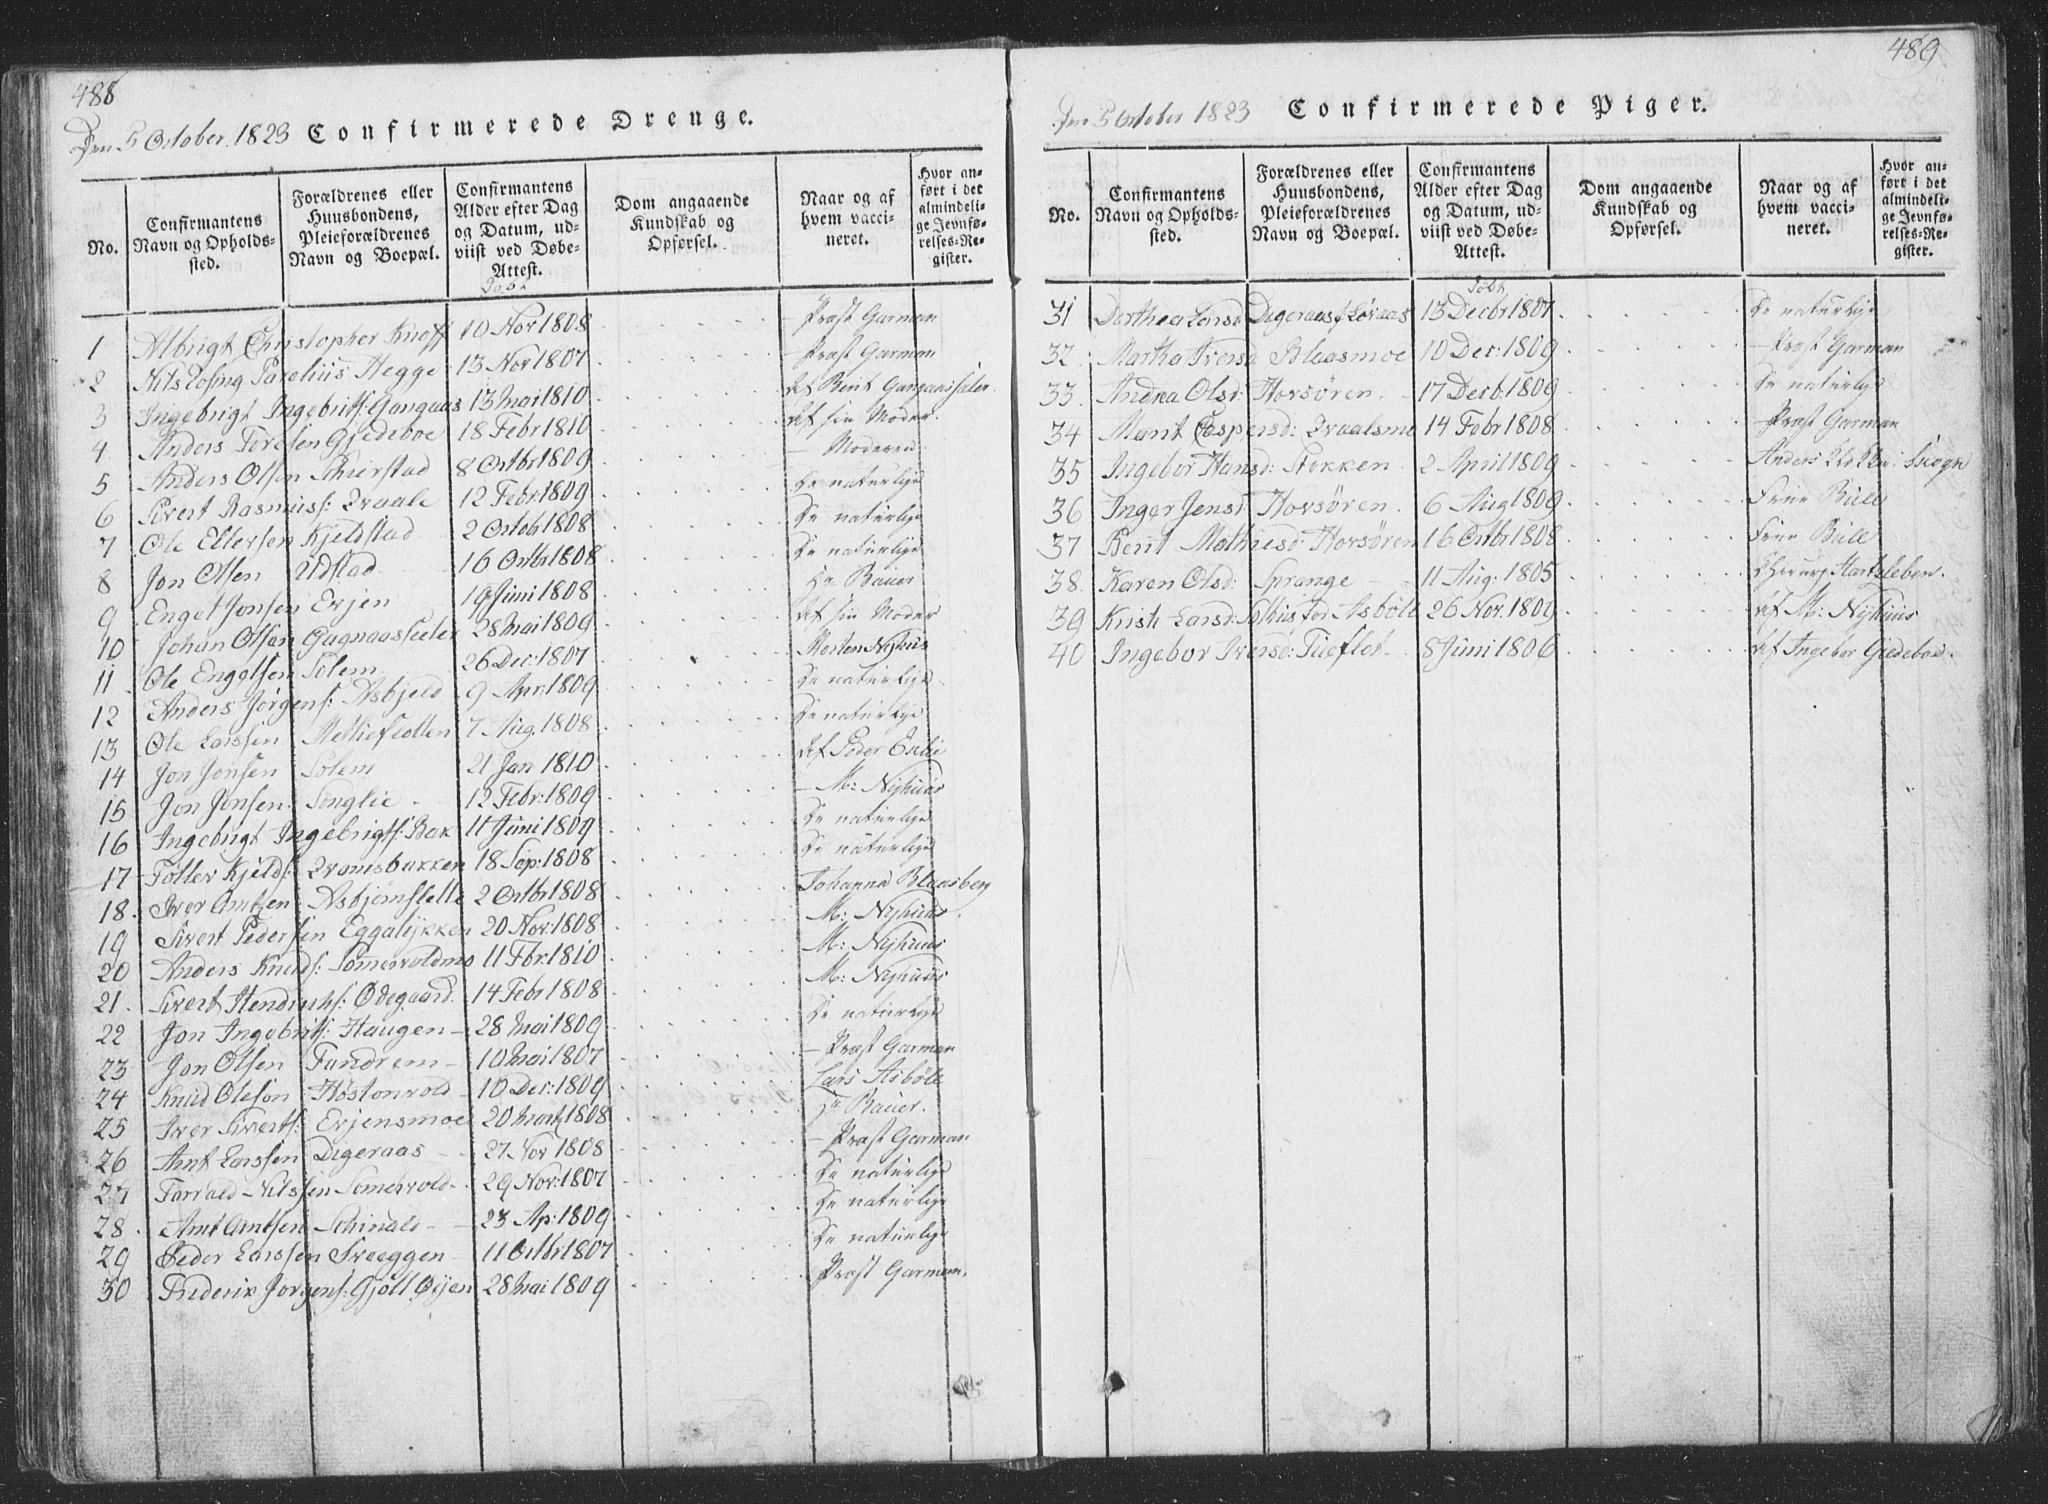 488
Den 5 October. 1823 Confirmerede Drenge.
No.
Confirmantens Navn og Opholds-sted.
Forældrenes eller Huusbondens, Pleieforældrenes Navn og Boepæl.
Confirmantens Alder efter Dag og Datum, ud-viist ved Døbe-Attest.
Dom angaaende Kundskab og Opførsel.
Naar og af hvem vacci-neret.
Hvor an-ført i det almindeli-ge Jevnfø-relses-Re-gister.
Døbt
1 Albrigt Christopher Knoff 10 Nov 1808 - Præst Garman
2 Nils Rosing Parelius Hegge 13 Nov 1807 - Præst Garman
3 Ingebrigt Ingebrits: Gangaas 13 Mai 1810 af Berit Gangaassæter
4 Anders Toresen Gjedeboe 18 Febr 1810 af sin Moder.
5 Anders Olsen Schierstad 8 Octbr 1809 - Moderen
6 Sivert Rasmuss: Qvaale 12 Febr: 1809 De naturlige
7 Ole Ellefsen Kjeldstad 2 Octob 1808 De naturlige
8 Jon Olsen Udstad 16 Octbr 1808 De naturlige
9 Engel Jonsen Evjen 19 Juni 1808 Hr Bauer
10 Johan Olsen Gagnaassæter 28 Mai 1809 af sin Moder
11 Ole Engelsen Solem 26 Dec: 1807 Morten Nyhus
12 Anders Jørgens: Asbjeld 9 Apr: 1809 De naturlige
13 Ole Larssen Metlieflotten 7 Aug 1808 De naturlige
14 Jon Jonsen Solem 21 Jan 1810 af Peder Eidlie
15 Jon Jonsen Songlie 12 Febr: 1809 - M: Nyhuus
16 Ingebrigt Ingebrigts: Bak 11 Juni 1809 De naturlige
17 Toller Kjelds: Qvamsbakken 18 Sep: 1808 De naturlige
18. Iver Arntsen Asbjørnslette 2 Octbr 1808 Johanna Blaasberg
19 Sivert Pedersen Eggalykken 20 Nov: 1808 M: Nyhuus
20 Anders Knuds: Somervoldmo 11 Fbr: 1810 M: Nyhuus
21. Sivert Hendrichs: Ødegaard 14 Febr 1808 M: Nyhuus
22 Jon Ingebrits: Haugen 28 Mai 1809 De naturlige
23 Jon Olsen Fandrem 10 Mai 1807 - Præst Garman
24 Knud Olesen Høstonvold 10 Dec: 1809 Lars Asbøll
25 Iver Siverts: Evjensmoe 20 Martz 1808 Hr Bauer.
26 Arnt Larssen Digeraas 27 Nov 1808 - Præst Garman
27 Farvald Nilssen Somervold 29 Nov: 1807 De naturlige
28. Arnt Arntsen Schinald 23 Ap: 1809 De naturlige
29 Peder Larssen Sveeggen 11 Octbr 1807 De naturlige
30 Frederik Jørgens: Gjøll Øijen 28 Mai 1809 Præst Garman.
489
Den 5 October 1823 Confirmerede Piger.
No.
Confirmantens Navn og Opholds-sted.
Forældrenes eller Huusbondens, Pleieforældrenes Navn og Boepæl.
Confirmantens Alder efter Dag og Datum, ud-viist ved Døbe-Attest.
Dom angaaende Kundskab og Opførsel.
Naar og af hvem vacci-neret.
Hvor an-ført i det almindeli-ge Jevnfø-relses-Re-gister.
Døbt
31 Dorthea Larsd Digeraas 13 Decbr 1807 De naturlige
32. Martha Iversd Blaasmoe 10 Dec: 1809 - Præst Garman
33. Andrea Olsd: Horsøren. 17 Decb: 1809 De naturlige
34 Marit Espersd: Qvaalsmo 14 Febr 1808 - Præst Garman
35 Ingebor Hansd: Stokken 2 April 1809 Anders
36 Inger Jensd Horsøren. 6 Aug 1809 Frue Bull
37 Berit Mathiesd: Horsøren 16 Octbr 1808 Frue Bull
38. Karen Olsd: Sprange 11 Aug: 1805 Chirurg Hartzleben.
39 Kirsti Larsd: Asbøll 26 Nov. 1809 af M: Nyhuus
40 Ingebor Iversd: Tueflot 8 Juni 1806 af Ingebor Giedeboe.